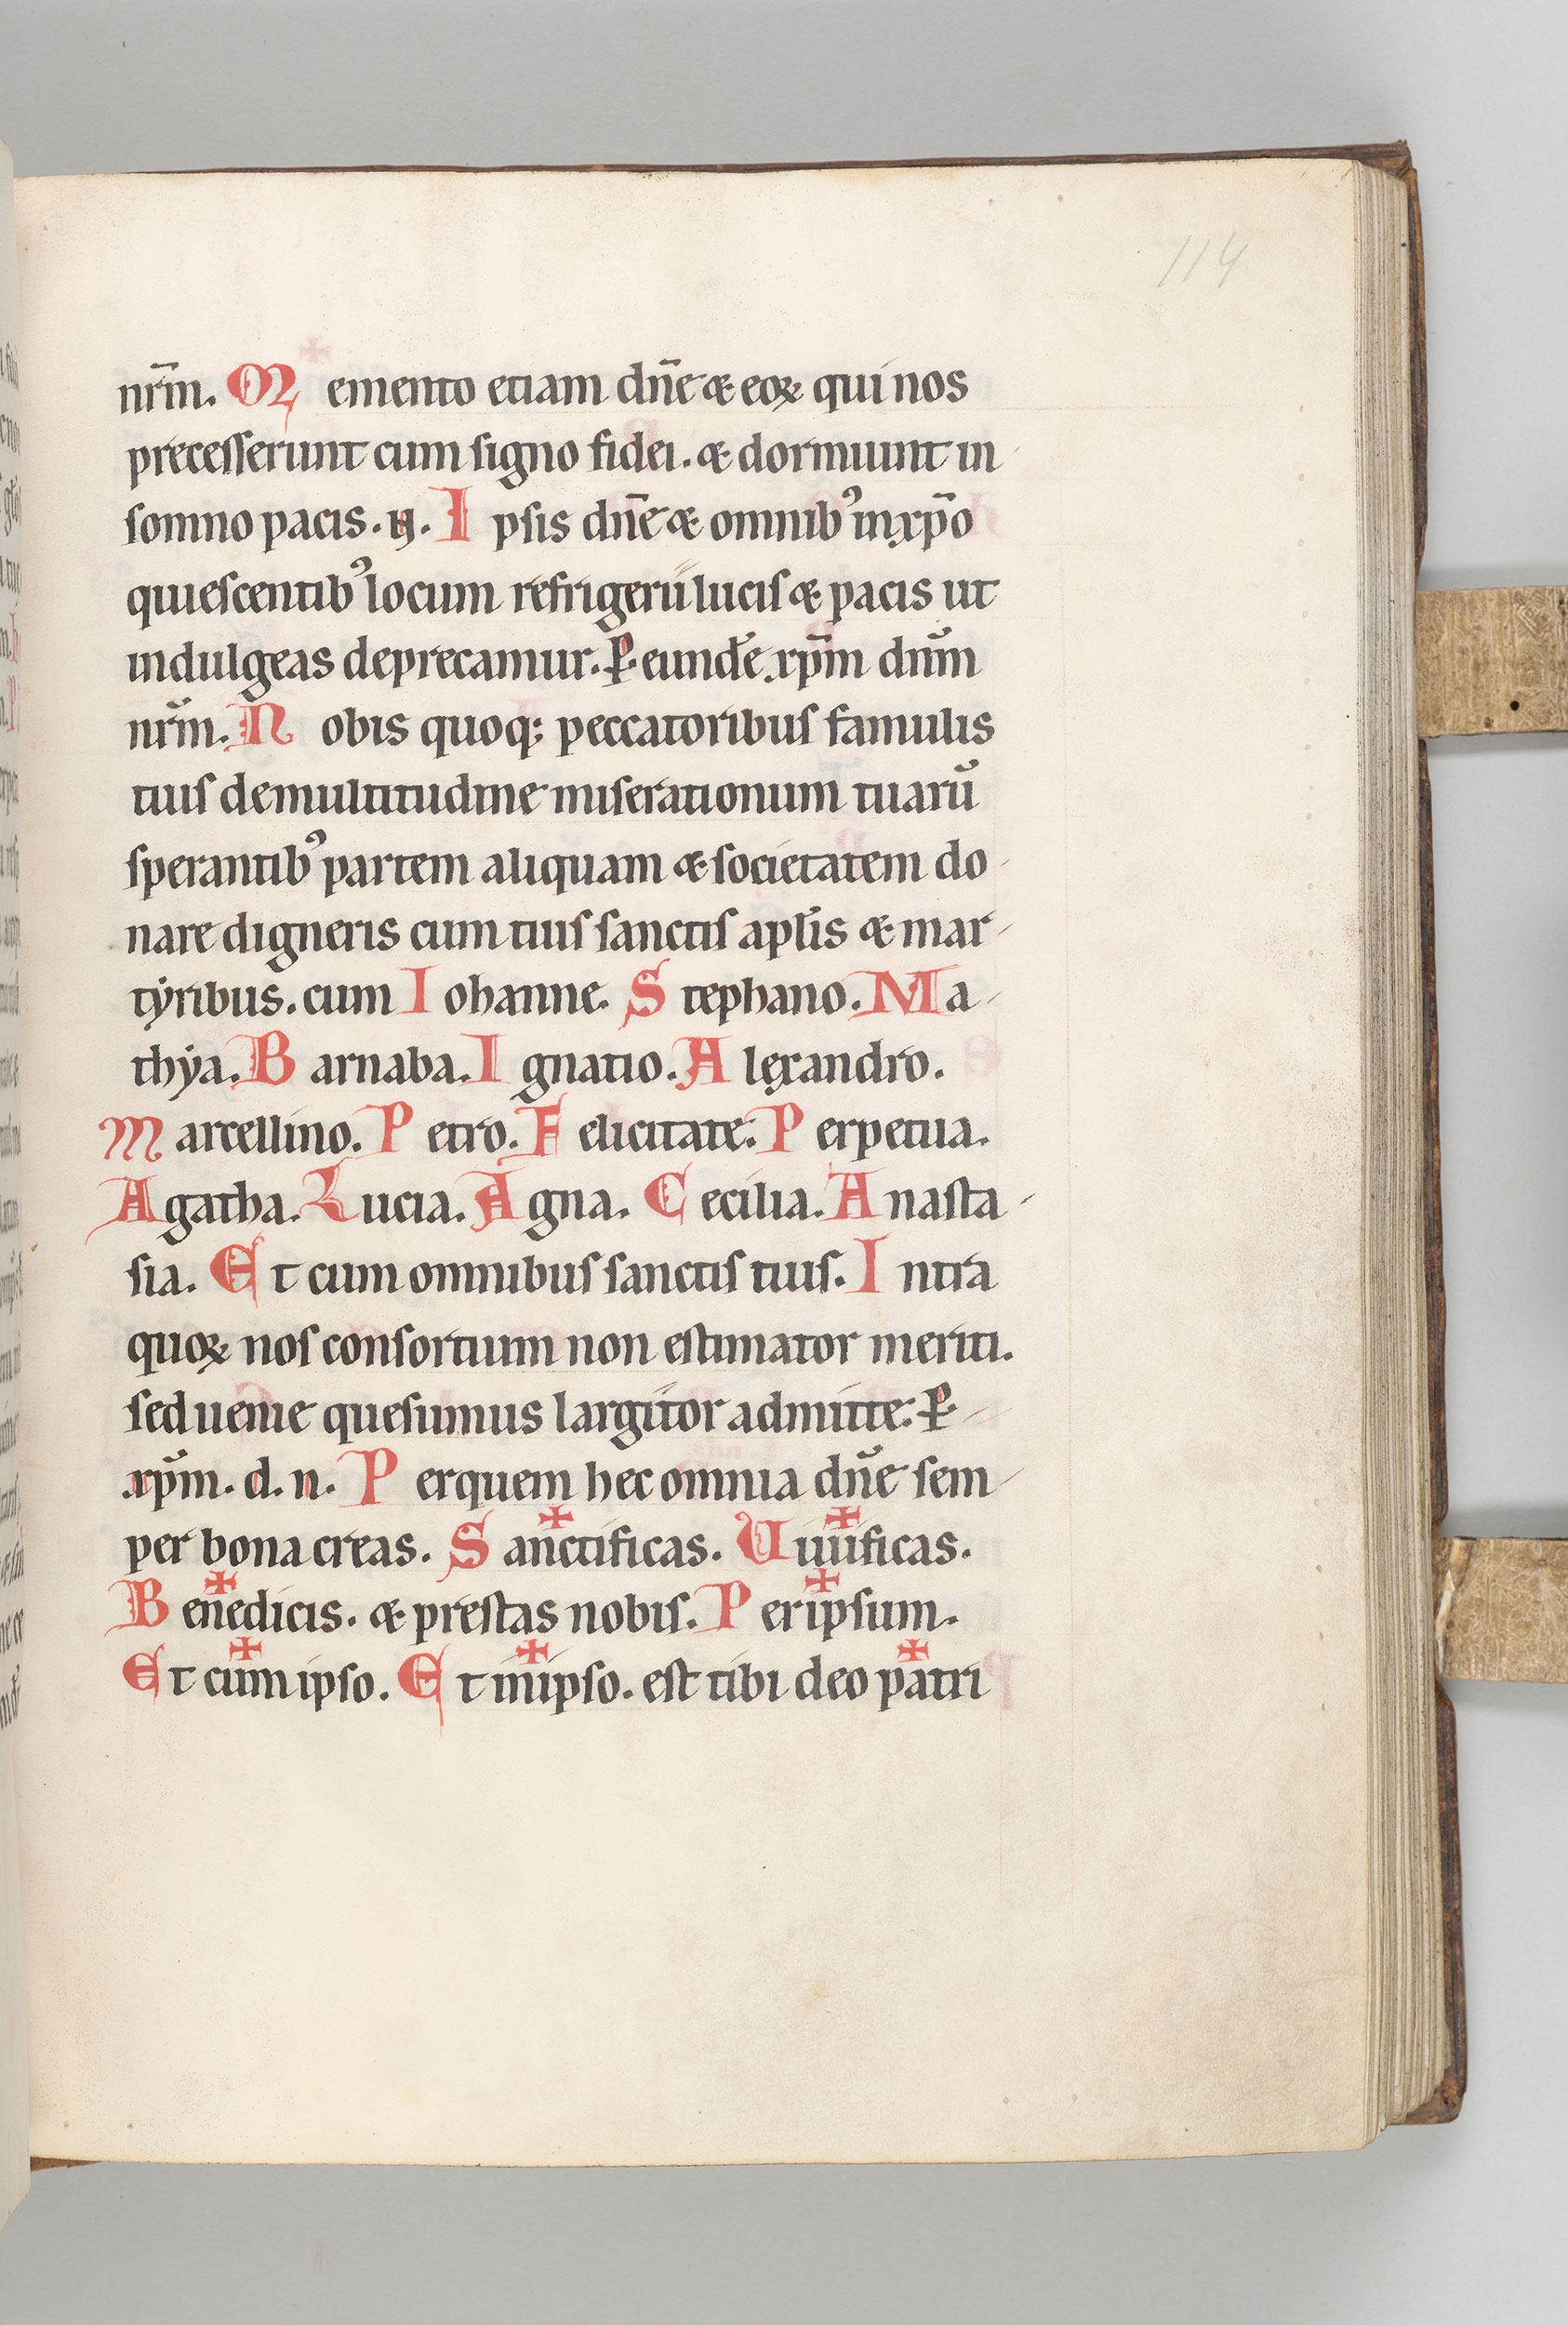 114
nr̄m. Memento etiam dn̄e & eoꝝ qui nos
precesserunt cum signo fidei. & dormiunt in
somno pacis. N. Ipsis dn̄e & omnibꝰ in xp̄o
quiescentibꝰ locum refrigerii lucis & pacis ut
indulgeas deprecamur. P. eundē xp̄m dn̄m
nr̄m. Nobis quoq; peccatoribus famulis
tuis de multitudine miserationum tuarū
sperantibꝰ partem aliquam & societatem do-
nare digneris cum tuis sanctis apl̄is & mar-
tyribus. cum Iohanne. Stephano. Ma-
thya. Barnaba. Ignatio. Alexandro.
Marcellino. Petro. Felicitate. Perpetua.
Agatha. Lucia. Agna. Cecilia. Anasta-
sia. Et cum omnibus sanctis tuis. Intra
quoꝝ nos consortium non estimator meriti.
sed uenie quesumus largitor admitte. P.
xp̄m. d. n. Per quem hec omnia dn̄e sem-
per bona creas. San✠ctificas. Uiui✠ficas.
Bene✠dicis. & prestas nobis. Per ip✠sum.
Et cum✠ ipso. Et in ✠ipso. est tibi deo pa✠tri